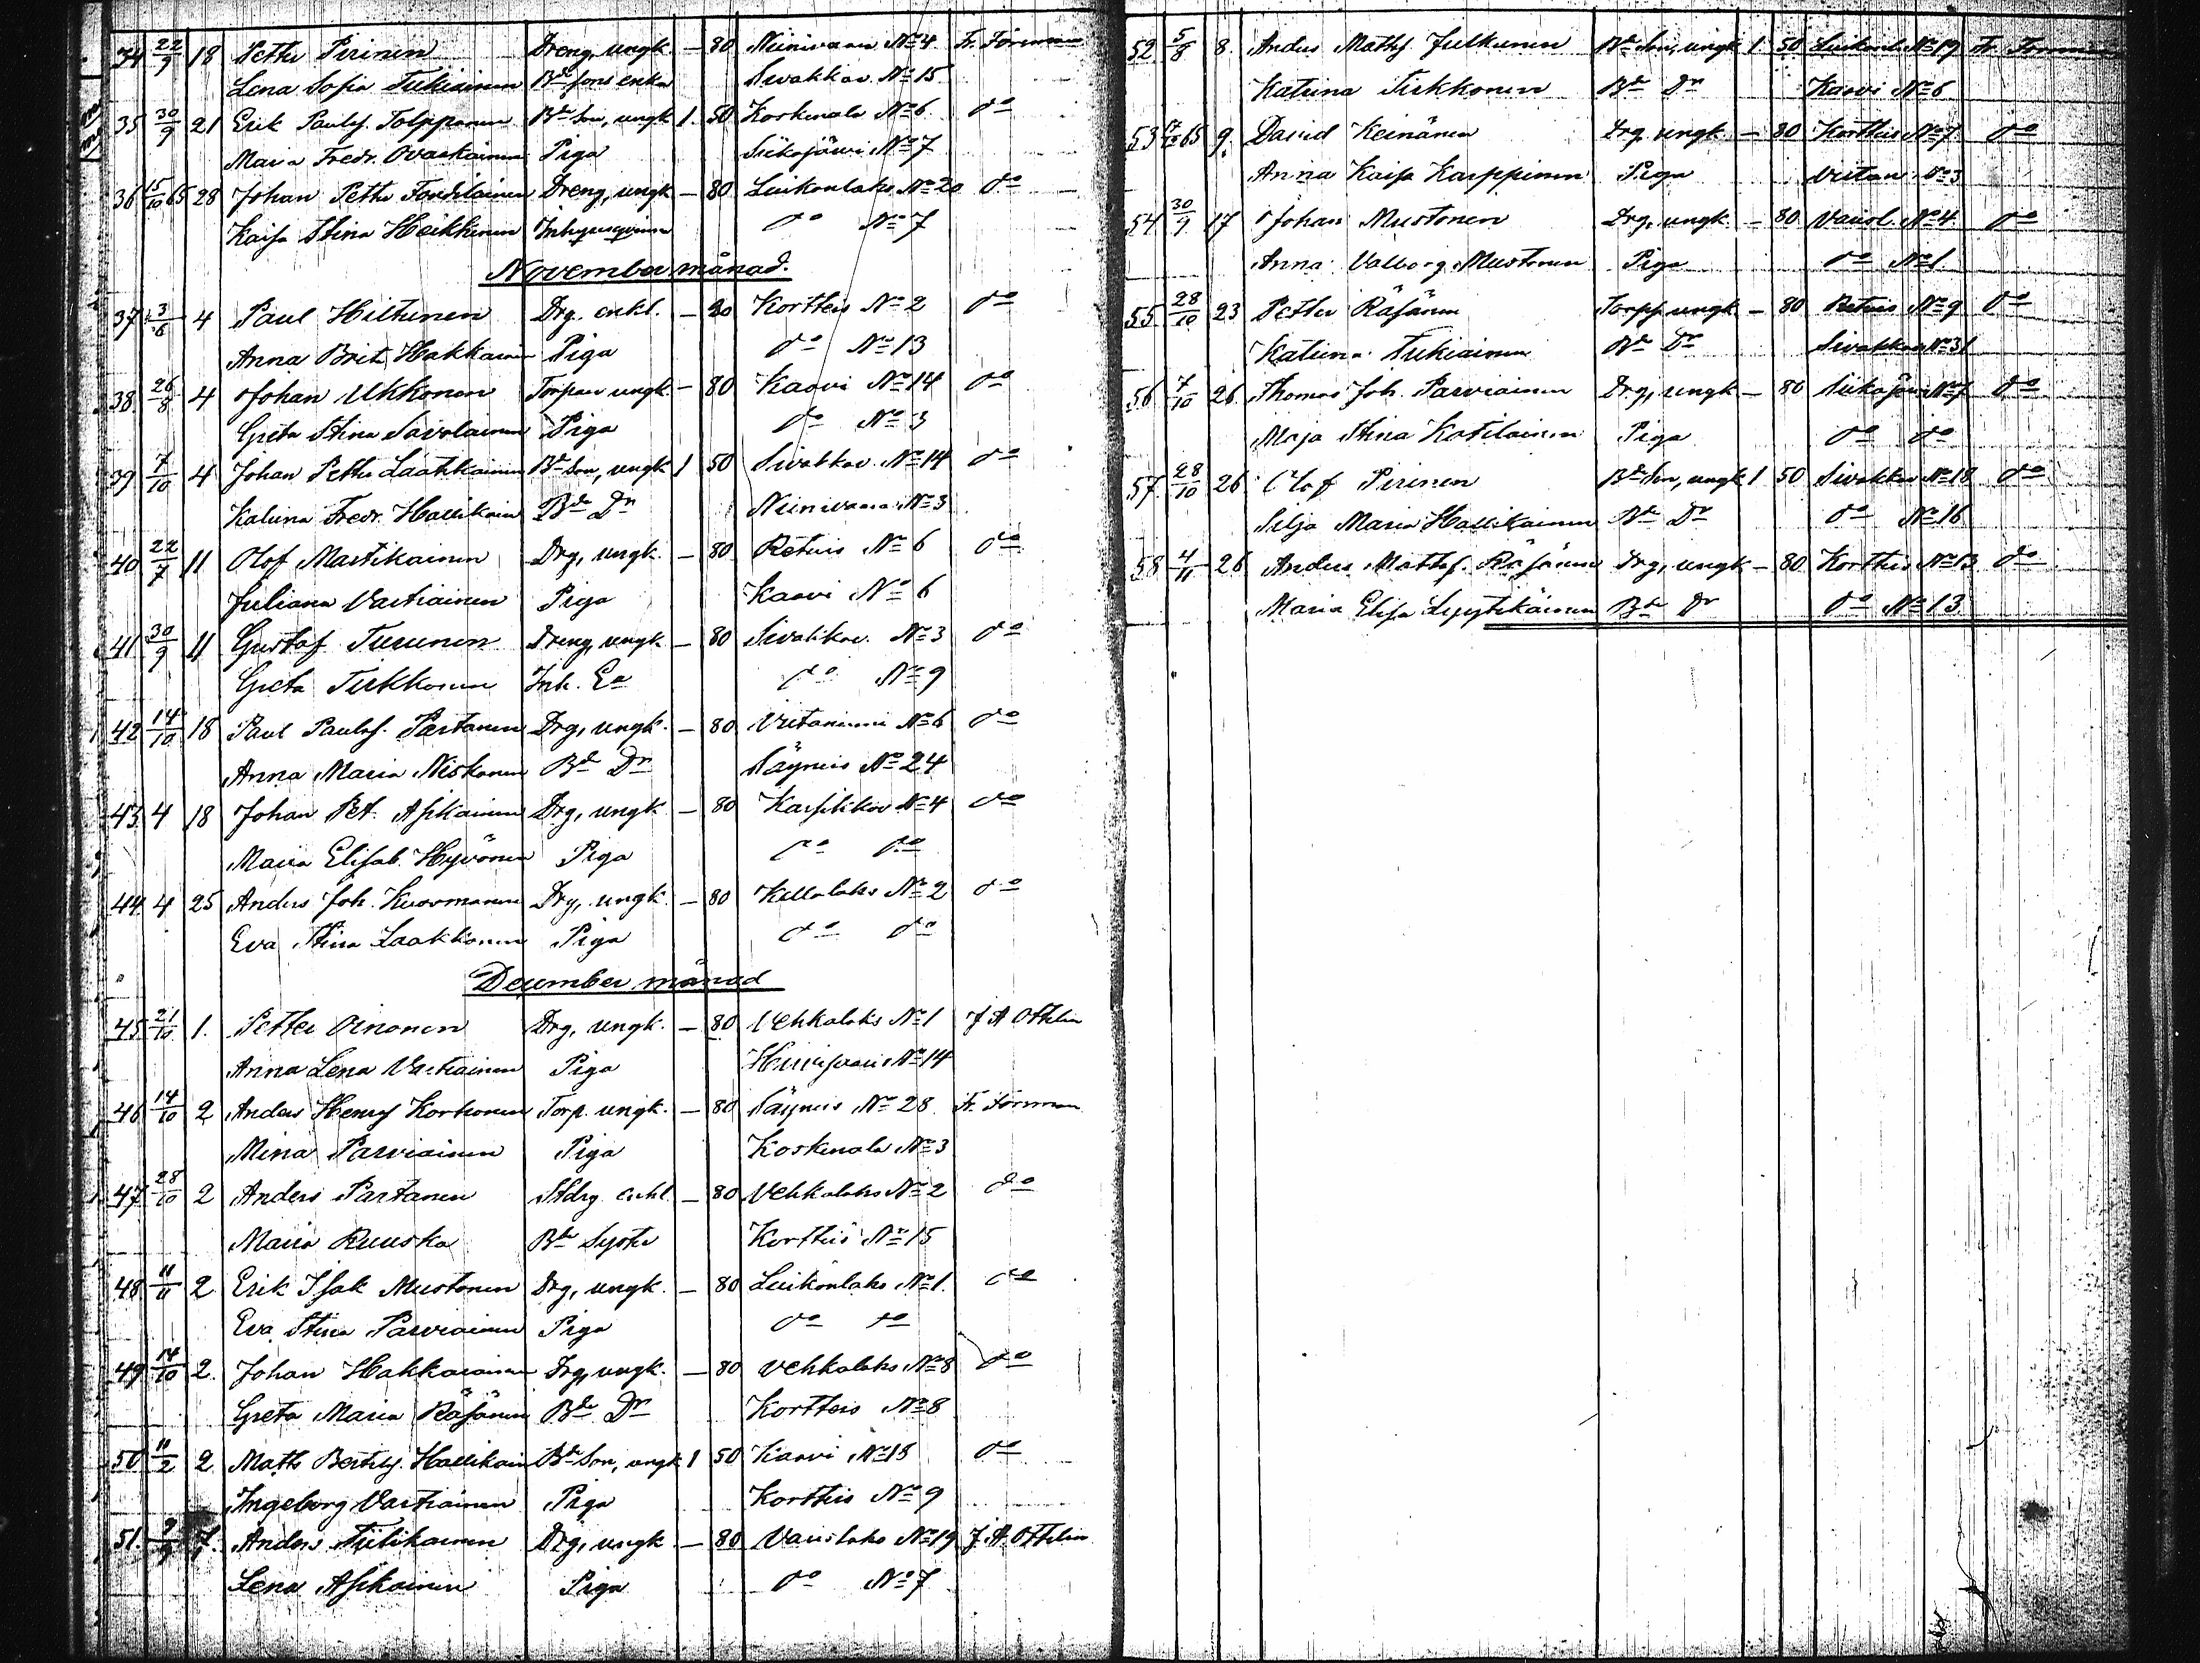 34 22/9 18 Petter Pirinen Dreng, ungk. — 80 Niinivaara No 4 Fr. Forsman
Lena Sofia Tukiainen Bde sons enka Sivakkav. No 15
35 30/9 21 Erik Paulss. Tolppanen Bde Son, ungk 1. 50 Koskenala No 6 do
Maria Fredr. Ovaskainen Piga Siikajärvi No 7
36 15/10 65 28 Johan Petter Tordilainen Dreng, ungk — 80 Luikonlaks No 20 do
Kaisa Stina Heikkinen Inhysesqvinna do No 7
November månad.
37 3/6 4 Paul Hiltunen Drg. enkl. — 20 Kortteis No 2 do
Anna Brita Hakkarain Piga do No 13
38 26/8 4 Johan Ukkonen Torpan ungk — 80 Kaavi No 14 do
Greta Stina Savolainen Piga do No 3
39 7/10 4 Johan Petter Laakkainen Bde Son, ungk 1 50 Sivakkav. No 14 do
Katrina Fredr. Hallikain Bde Dr Niinivaara No 3
40 22/7 11 Olof Martikainen Drg, ungk. — 80 Retuis No 6 do
Juliana Vartiainen Piga Kaavi No 6
41 30/9 11 Gustaf Turunen Dreng, ungk — 80 Sivakkav. No 3 do
Greta Tirkkonen Inh. Ea do No 9
42 14/10 18 Paul Paulss. Partanen Drg, ungk. — 80 Viitaniemi No 6 do
Anna Maria Niskanen Bde Dr Säyneis No 24
43 4 18 Johan Pet. Asikainen Drg, ungk. — 80 Karsikkov No 4 do
Maria Elisab. Hyvönen Piga do do
44 4 25 Anders Joh. Kuosmanen Drg, ungk. — 80 Kellolaks No 2 do
Eva Stina Laakkonen Piga do do
December månad
45 21/10 1. Petter Oinonen Drg, ungk. — 80 Vehkalaks No 1 J A Othelin
Anna Lena Vartiainen Piga Hirvisvaara No 14
46 14/10 2 Anders Henrs Korhonen Torp. ungk. — 80 Säyneis No 28 Fr. Forsman
Mina Parviainen Piga Koskenala No 3
47 28/10 2 Anders Partanen Stdrg enkl — 80 Vehkalaks No 2 do
Maria Ruuska Bde Syster Kortteis No 15
48 11/11 2 Erik Isak Mustonen Drg, ungk. — 80 Luikonlaks No 1. do
Eva Stina Parviainen Piga do do
49 14/10 2. Johan Hakkarainen Drg, ungk. — 80 Vehkalaks No 8 do
Greta Maria Räsänen Bde Dr Kortteis No 8
50 11/2 2 Matts Bertilss. Hallikain Bde Son, ungk 1 50 Kaavi No 18 do
Ingeborg Vartiainen Piga Kortteis No 9
51. 7. Anders Tiilikainen Drg, ungk — 80 Vaiislaks No 19 J. A. Othelin
Lena Asikainen Piga do No 7
52 5/8 8. Anders Mathss Julkunen Bde Son, ungk 1 50 Luikonl. No 19 Fr. Forsman
Katrina Tirkkonen Bde Dr Kaavi No 6
53 65 9. David Keinänen Drg. ungk. — 80 Kortteis No 7 do
Anna Kaisa Karppinen Piga Viitan No 3
54 30/9 17 Johan Mustonen Drg, ungk. — 80 Vaiisl. No 4. do
Anna Valborg Mustonen Piga do No 1.
55 28/10 23 Petter Räsänen Torpp ungk — 80 Retuis No 9 do
Katrina Tukiainen Bde Dr Sivakkav No 31
56 7/10 26 Thomas Joh. Parviainen Drg, ungk — 80 Siikajärvi No 7 do
Maja Stina Kotilainen Piga do do
57 28/10 26 Olof Pirinen Bde Son, ungk 1 50 Sivakkav No 18 do
Silja Maria Hallikainen Bde Dr do No 16
58 4/11 26 Anders Mattss. Räsänen Drg, ungk — 80 Kortteis No 13 do
Maria Elisa Lyytikäinen Bde Dr do No 13